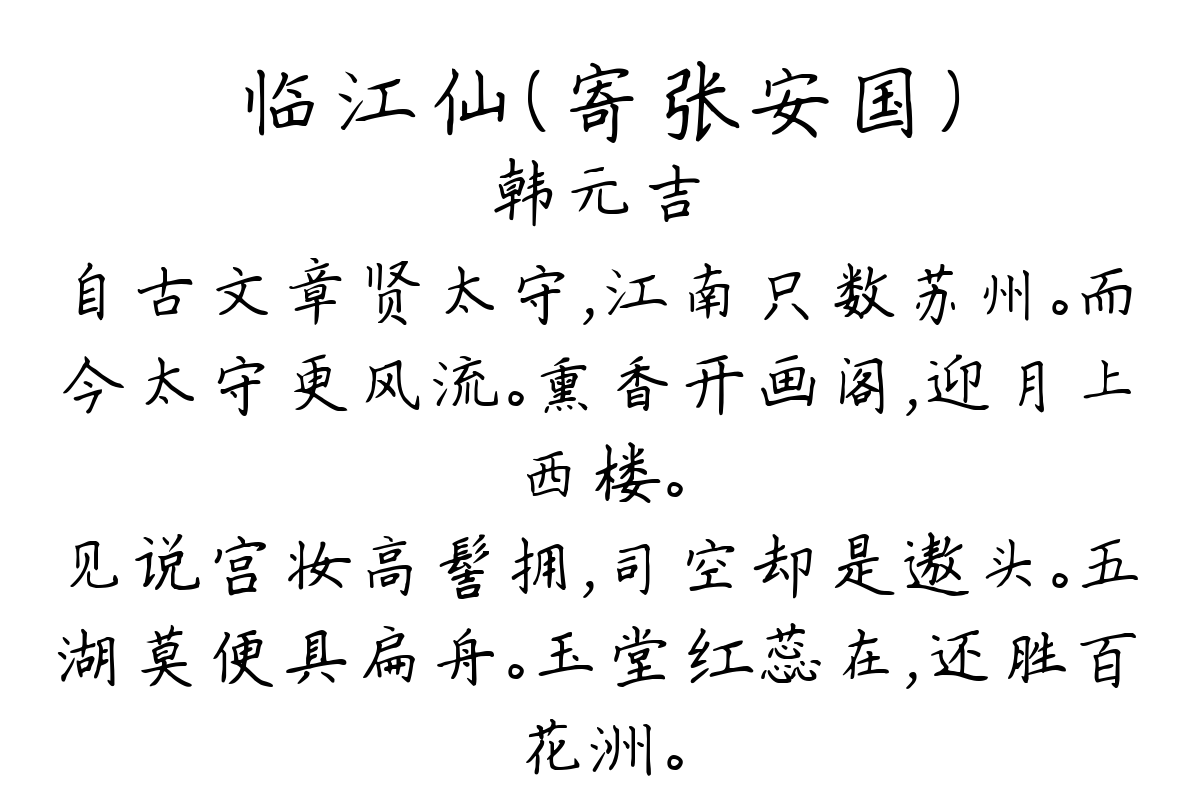 临江仙(寄张安国)
韩元吉
自古文章贤太守,江南只数苏州。而
今太守更风流。熏香开画阁,迎月上
西楼。
见说宫妆高髻拥,司空却是遨头。五
湖莫便具扁舟。玉堂红蕊在,还胜百
花洲。